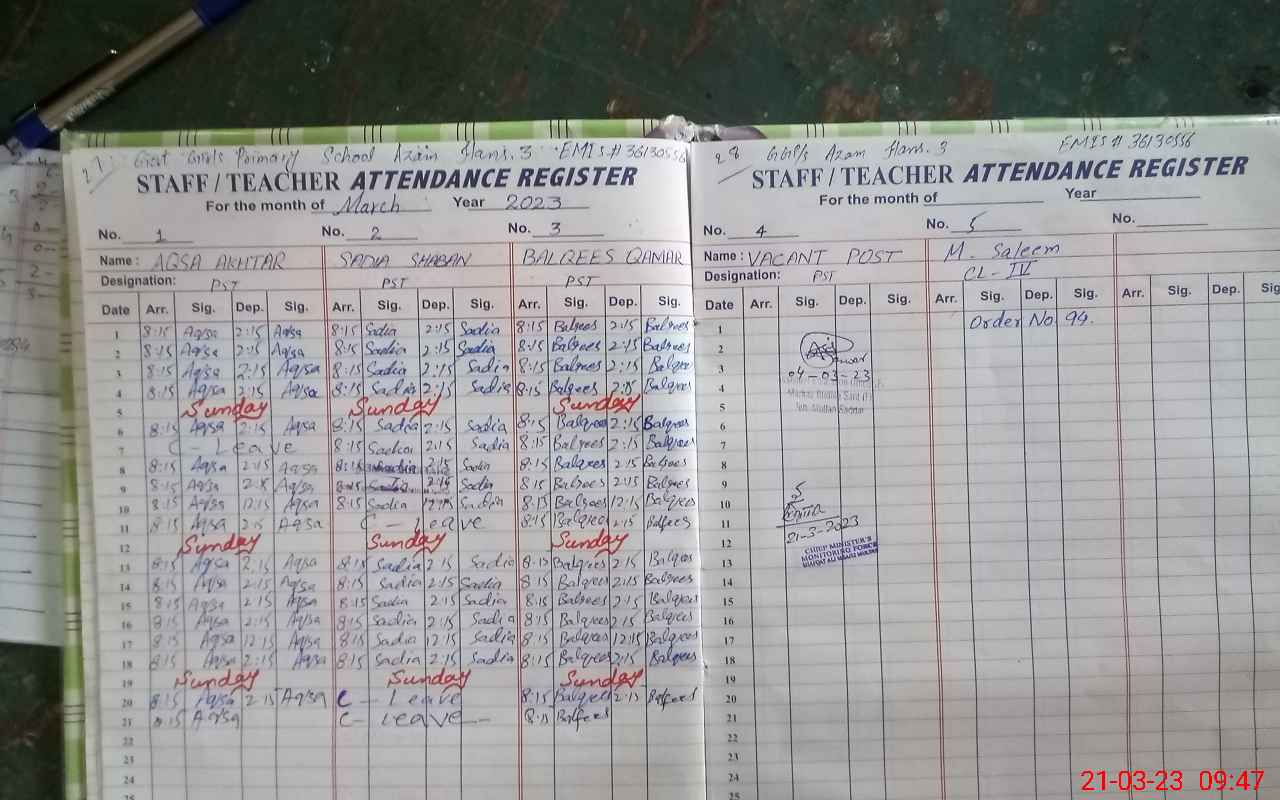 27 Govt Girls Primary School Azam Hans. 3 EMIS # 36130556
STAFF / TEACHER ATTENDANCE REGISTER
For the month of March Year 2023
No. 1 No. 2 No. 3
Name : AQSA AKHTAR SADIA SHABAN BALQEES QAMAR
Designation: PST PST PST
Date Arr. Sig. Dep. Sig. Arr. Sig. Dep. Sig. Arr. Sig. Dep. Sig.
1 8:15 Aqsa 2:15 Aqsa 8:15 Sadia 2:15 Sadia 8:15 Balqees 2:15 Balqees
2 8:15 Aqsa 2:15 Aqsa 8:15 Sadia 2:15 Sadia 8:15 Balqees 2:15 Balqees
3 8:15 Aqsa 2:15 Aqsa 8:15 Sadia 2:15 Sadia 8:15 Balqees 2:15 Balqees
4 8:15 Aqsa 2:15 Aqsa 8:15 Sadia 2:15 Sadia 8:15 Balqees 2:15 Balqees
5 Sunday Sunday Sunday
6 8:15 Aqsa 2:15 Aqsa 8:15 Sadia 2:15 Sadia 8:15 Balqees 2:15 Balqees
7 C - Leave 8:15 Sadia 2:15 Sadia 8:15 Balqees 2:15 Balqees
8 8:15 Aqsa 2:15 Aqsa 8:15 Sadia 2:15 Sadia 8:15 Balqees 2:15 Balqees
9 8:15 Aqsa 2:15 Aqsa 8:15 Sadia 2:15 Sadia 8:15 Balqees 2:15 Balqees
10 8:15 Aqsa 12:15 Aqsa 8:15 Sadia 12:15 Sadia 8:15 Balqees 12:15 Balqees
11 8:15 Aqsa 2:15 Aqsa C - Leave 8:15 Balqees 2:15 Balqees
12 Sunday Sunday Sunday
13 8:15 Aqsa 2:15 Aqsa 8:15 Sadia 2:15 Sadia 8:15 Balqees 2:15 Balqees
14 8:15 Aqsa 2:15 Aqsa 8:15 Sadia 2:15 Sadia 8:15 Balqees 2:15 Balqees
15 8:15 Aqsa 2:15 Aqsa 8:15 Sadia 2:15 Sadia 8:15 Balqees 2:15 Balqees
16 8:15 Aqsa 2:15 Aqsa 8:15 Sadia 2:15 Sadia 8:15 Balqees 2:15 Balqees
17 8:15 Aqsa 12:15 Aqsa 8:15 Sadia 12:15 Sadia 8:15 Balqees 12:15 Balqees
18 8:15 Aqsa 2:15 Aqsa 8:15 Sadia 2:15 Sadia 8:15 Balqees 2:15 Balqees
19 Sunday Sunday Sunday
20 8:15 Aqsa 2:15 Aqsa C - Leave 8:15 Balqees 2:15 Balqees
21 8:15 Aqsa C - Leave - 8:15 Balqees
22
23
24
25
28 GGP/S Azam Hans. 3 EMIS # 36130556
STAFF / TEACHER ATTENDANCE REGISTER
For the month of Year
No. 4 No. 5 No.
Name : VACANT POST M. Saleem
Designation: PST CL-IV
Date Arr. Sig. Dep. Sig. Arr. Sig. Dep. Sig. Arr. Sig. Dep. Sig
1 Order No 99.
2
3 04-03-23
4
5
6
7
8
9
10
11 21-3-2023
12 CHIEF MINISTER'S
13 MONITORING FORCE
14
15
16
17
18
19
20
21
22
23
24
25
21-03-23 09:47